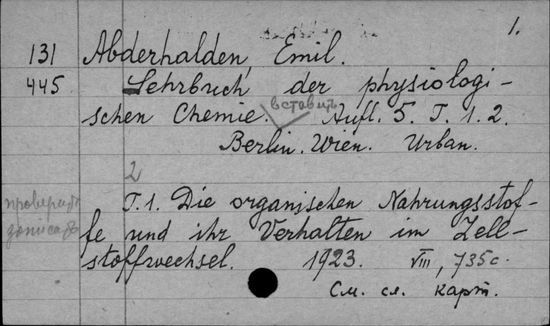 1.
131 Abderhalden, Emil.
445 Lehrbuch der physiologi-
schen Chemie. Aufl. 5. T. 1. 2.
вставить
Berlin. Wien. Urban.
2
T. 1. Die organischen Nahrungsstof-
fe und ihr Verhalten im Zell-
stoffwechsel. 1923. VIII, 735 с.
См. сл. карт.